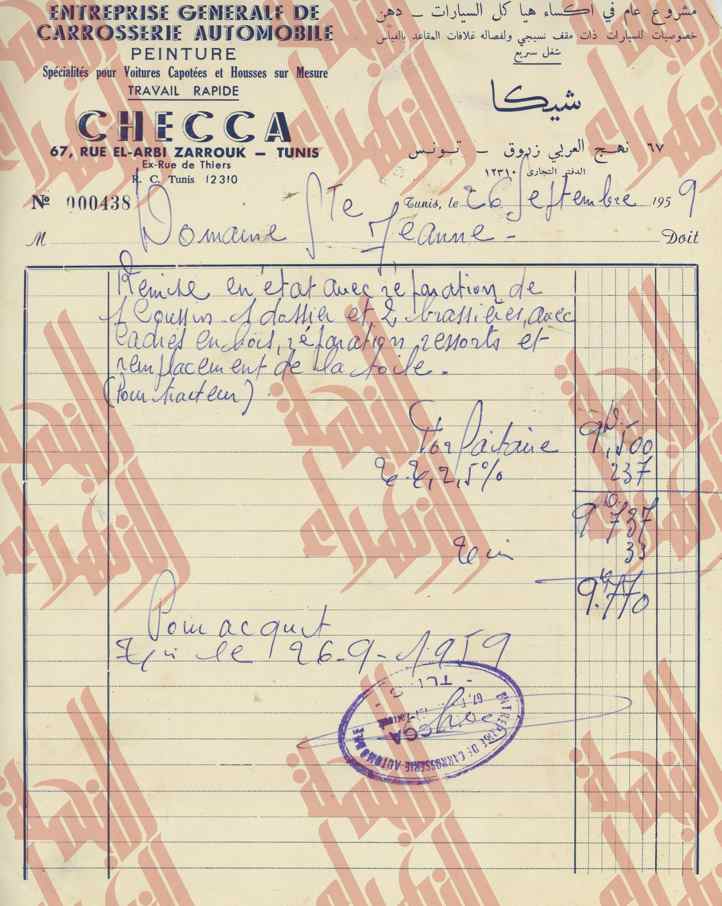 ENTREPRISE GENERALE DE
CARROSSERIE AUTOMOBILE
PEINTURE
Spécialités pour Voitures Capotées et Housses sur Mesure
TRAVAIL RAPIDE
CHECCA
67, RUE EL-ARBI ZARROUK — TUNIS
Ex-Rue de Thiers
R. C. Tunis 12310
مشروع عام في اكساء هيا كل السيارات — دهن
خصوصيات للسيارات ذات مقف نسيجي ولفصاله غلافات المقاعد بالقياس
شغل سريع
شيكا
٦٧ نهج العربي زروق — تونس
الدفتر التجارى ١٢٣١٠
Nº 000438 Tunis, le 26 Septembre 1959
M Domaine Ste Jeanne - Doit
Remise en état avec réparation de
1 Coussin 1 dossier et 2 brassières, avec
Cadres en bois, réparation ressorts et
remplacement de la toile.
(Pour tracteur)
Forfaitaire 9,500
T.T, 2,5% 237
9,737
33
9.770
Pour acquit
le 26-9-1959
ENTREPRISE DE CARROSSERIE AUTOMOBILE